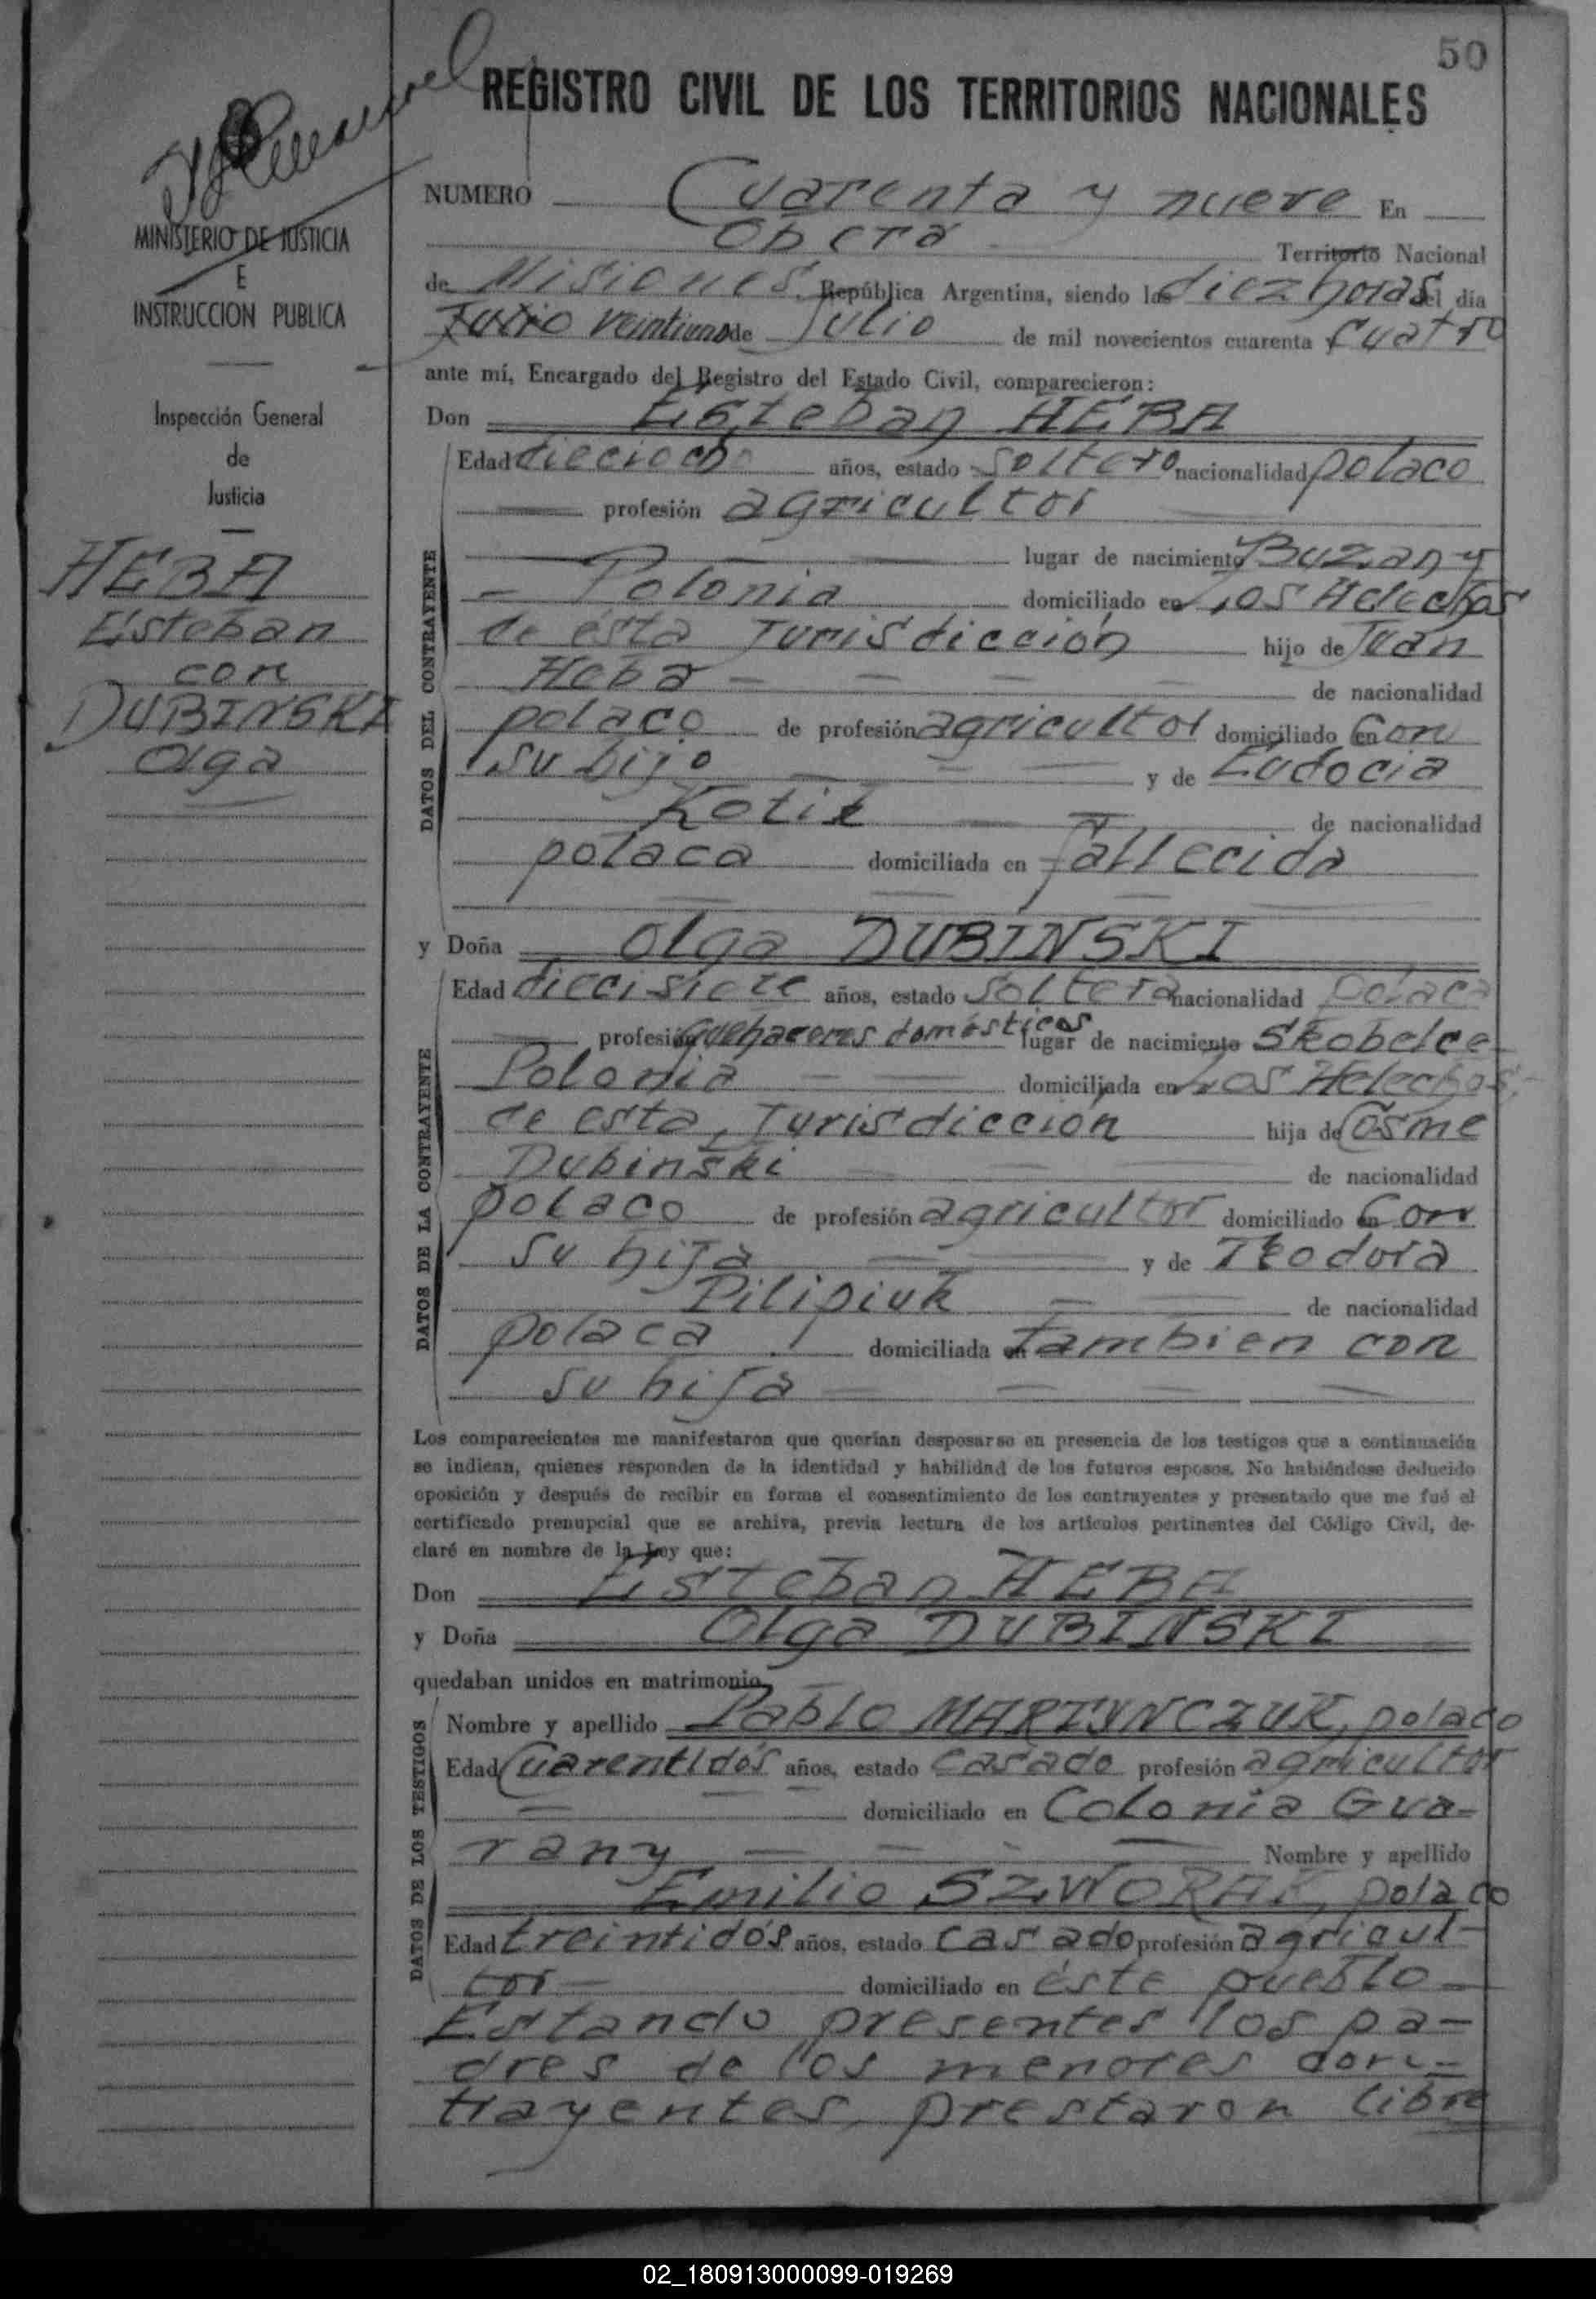 50
REGISTRO CIVIL DE LOS TERRITORIOS NACIONALES
MINISTERIO DE JUSTICIA
E
INSTRUCCION PUBLICA
Inspección General
de
Justicia
HEBA
Esteban
con
DUBINSKI
Olga
NUMERO Cuarenta y nueve En
Oberá Territorio Nacional
de Misiones, República Argentina, siendo las diez horas del día
Julio veintiuno de Julio de mil novecientos cuarenta y cuatro
ante mí, Encargado del Registro del Estado Civil, comparecieron:
Don Esteban HEBA
DATOS DEL CONTRAYENTE
Edad dieciocho años, estado soltero nacionalidad polaco
profesión agricultor
lugar de nacimiento Buzany
Polonia domiciliado en Los Helechos
de ésta Jurisdicción hijo de Juan
Heba de nacionalidad
polaco de profesión agricultor domiciliado en con
su hijo y de Eudocia
Kotik de nacionalidad
polaca domiciliada en fallecida
y Doña Olga DUBINSKI
DATOS DE LA CONTRAYENTE
Edad diecisiete años, estado soltera nacionalidad polaca
profesión quehaceres domésticos lugar de nacimiento Skobelce
Polonia domiciliada en Los Helechos,
de esta, Jurisdicción hija de Cosme
Dubinski de nacionalidad
polaco de profesión agricultor domiciliado en con
su hija y de Teodora
Pilipiuk de nacionalidad
polaca domiciliada en tambien con
su hija
Los comparecientes me manifestaron que querían desposarse en presencia de los testigos que a continuación
se indican, quienes responden de la identidad y habilidad de los futuros esposos. No habiéndose deducido
oposición y después de recibir en forma el consentimiento de los contrayentes y presentado que me fué el
certificado prenupcial que se archiva, previa lectura de los artículos pertinentes del Código Civil, de-
claré en nombre de la Ley que:
Don Esteban HEBA
y Doña Olga DUBINSKI
quedaban unidos en matrimonio
DATOS DE LOS TESTIGOS
Nombre y apellido Pablo MARTYNCZUK, polaco
Edad Cuarentidós años, estado casado profesión agricultor
domiciliado en Colonia Gua-
rany Nombre y apellido
Emilio SZWORAK, polaco
Edad treintidós años, estado casado profesión agricul-
tor domiciliado en éste pueblo
Estando presentes los pa-
dres de los menores con-
trayentes, prestaron libre
02_180913000099-019269